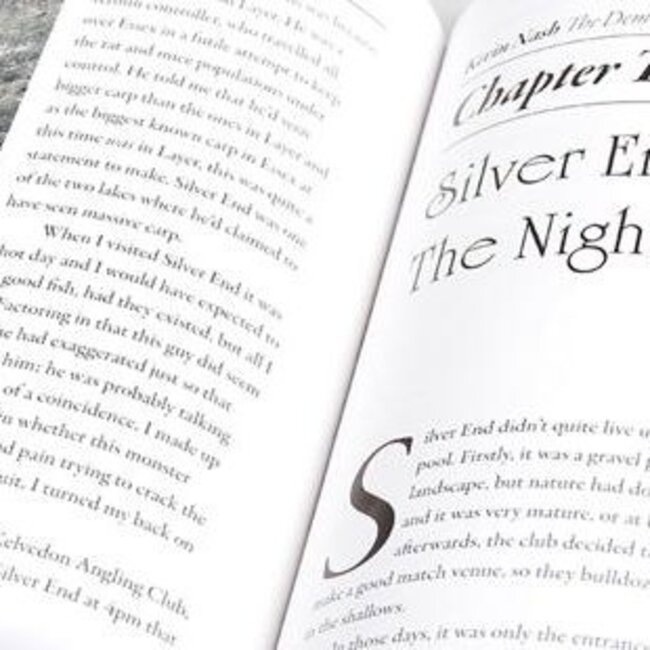 was because
controller, who travelled all
over Essex in a futile attempt to keep
the rat and mice populations under
control. He told me that he'd seen
bigger carp than the ones in Layer and
as the biggest known carp in Essex at
this time was in Layer, this was quite a
statement to make. Silver End was one
of the two lakes where he'd claimed to
have seen massive carp.
When I visited Silver End it was
hot day and I would have expected to
good fish, had they existed, but all I
Factoring in that this guy did seem
he had exaggerated just so that
him; he was probably talking
of a coincidence. I made up
whether this monster
pain trying to crack the
I turned my back on
Kelvedon Angling Club,
Silver End at 4pm that
Kevin Nash The Dem
Chapter T
Silver En
The Nigh
Silver End didn't quite live u
pool. Firstly, it was a gravel p
landscape, but nature had do
and it was very mature, or at l
afterwards, the club decided t
make a good match venue, so they bulldoz
in the shallows.
In those days, it was only the entranc